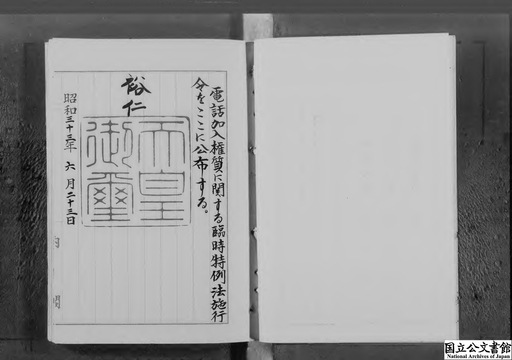 電話加入権質に関する臨時特例法施行
令をここに公布する。
裕仁
天皇
御璽
昭和三十三年 六 月二十三日
国立公文書館
National Archives of Japan